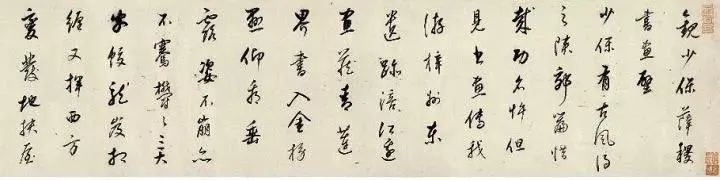 觀少保薛稷
書畫壁
少保有古風得
之陝郊篇惜
哉功名忤但
見書畫傳我
游梓州東
遺跡涪江邊
畫藏青蓮
界書入金榜
懸仰看垂
露姿不崩亦
不騫鬱〻三大
字蛟龍岌相
纏又揮西方
變發地扶屋